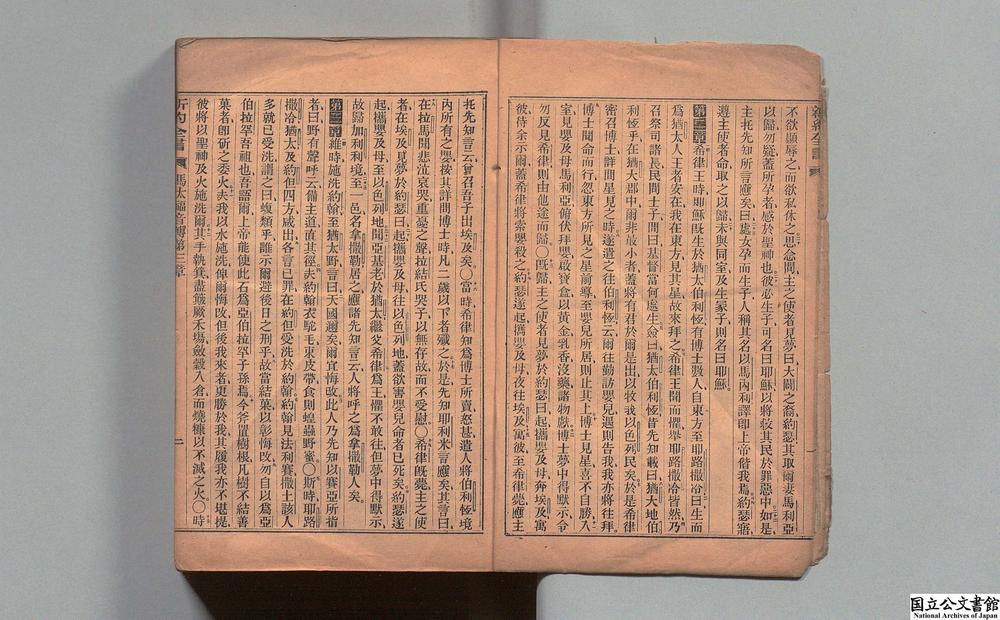 不欲顯辱之而欲私休之思念間主之使者見夢曰大闢之裔約瑟其取爾妻馬利亞
以歸勿疑蓋所孕者感於聖神也彼必生子可名曰耶穌以將救其民於罪惡中如是
主托先知所言應矣曰處女孕而生子人稱其名以馬內利譯卽上帝偕我焉約瑟寤
遵主使者命取之以歸未與同室及生冢子則名曰耶穌
第二章希律王時耶穌旣生於猶太伯利恆有博士數人自東方至耶路撒冷曰生而
爲猶太人王者安在我在東方見其星故來拜之希律王聞而懼舉耶路撒冷皆然乃
召祭司諸長民間士子問曰基督當何處生僉曰猶太伯利恆昔先知載曰猶大地伯
利恆乎在猶大郡中爾非最小者蓋將有君於爾是出以牧我以色列民矣於是希律
密召博士詳問星見之時遂遣之往伯利恆云爾往勤訪嬰兒遇則告我我亦將往拜
博士聞命而行忽東方所見之星前導至嬰兒所居則止其上博士見星喜不自勝入
室見嬰及母馬利亞俯伏拜嬰啟寶盒以黃金乳香沒藥諸物獻博士夢中得默示令
勿反見希律則由他途而歸○旣歸主之使者見夢於約瑟曰起攜嬰及母奔埃及寓
彼待余示爾蓋希律將索嬰殺之約瑟遂起攜嬰及母夜往埃及寓彼至希律薨應主
托先知言云曾召吾子出埃及矣○當時希律知爲博士所賣怒甚遣人將伯利恆境
內所有之嬰按其詳問博士時凡二歲以下者殺之於是先知耶利米言應矣其言曰
在拉馬聞悲泣哀哭重憂之聲拉結氏哭子以無存故而不受慰○希律旣薨主之使
者在埃及見夢於約瑟曰起攜嬰及母往以色列地蓋欲害嬰兒命者已死矣約瑟遂
起攜嬰及母至以色列地聞亞基老於猶太繼父希律爲王懼不敢往但夢中得默示
故歸加利利境至一邑名拿撒勒居之應諸先知言云人將呼之爲拿撒勒人矣
第三章維時施洗約翰至猶太野言曰天國邇矣爾宜悔改此人乃先知以賽亞所指
者曰野有聲呼云備主道直其徑夫約翰衣駝毛束皮帶食則蝗蟲野蜜○斯時耶路
撒冷猶太及約但四方咸出各言已罪在約但受洗於約翰約翰見法利賽撒土該人
多就已受洗謂之曰蝮類乎誰示爾避後日之刑乎故當結菓以彰悔改勿自以爲亞
伯拉罕吾祖也吾語爾上帝能使此石爲亞伯拉罕子孫焉今斧置樹根凡樹不結善
菓者卽斫之委火夫我以水施洗俾爾悔改但後我來者更勝於我其履我亦不堪提
彼將以聖神及火施洗爾其手執箕盡簸厥禾場斂穀入倉而燒糠以不滅之火○時
新約全書 馬太福音傳第三章 二
国立公文書館
National Archives of Japan